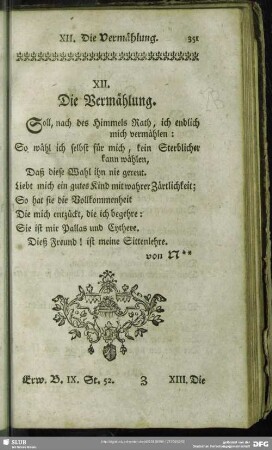 XII. Die Vermählung. 351
XII.
Die Vermählung.
Soll, nach des Himmels Rath, ich endlich
mich vermählen:
So wähl ich selbst für mich, kein Sterblicher
kann wählen,
Daß diese Wahl ihn nie gereut.
Liebt mich ein gutes Kind mit wahrer Zärtlichkeit;
So hat sie die Vollkommenheit
Die mich entzückt, die ich begehre:
Sie ist mir Pallas und Cythere.
Dieß Freund! ist meine Sittenlehre.
von N**
Erw. B. IX. St. 52. Z XIII. Die
SLUB
DFG